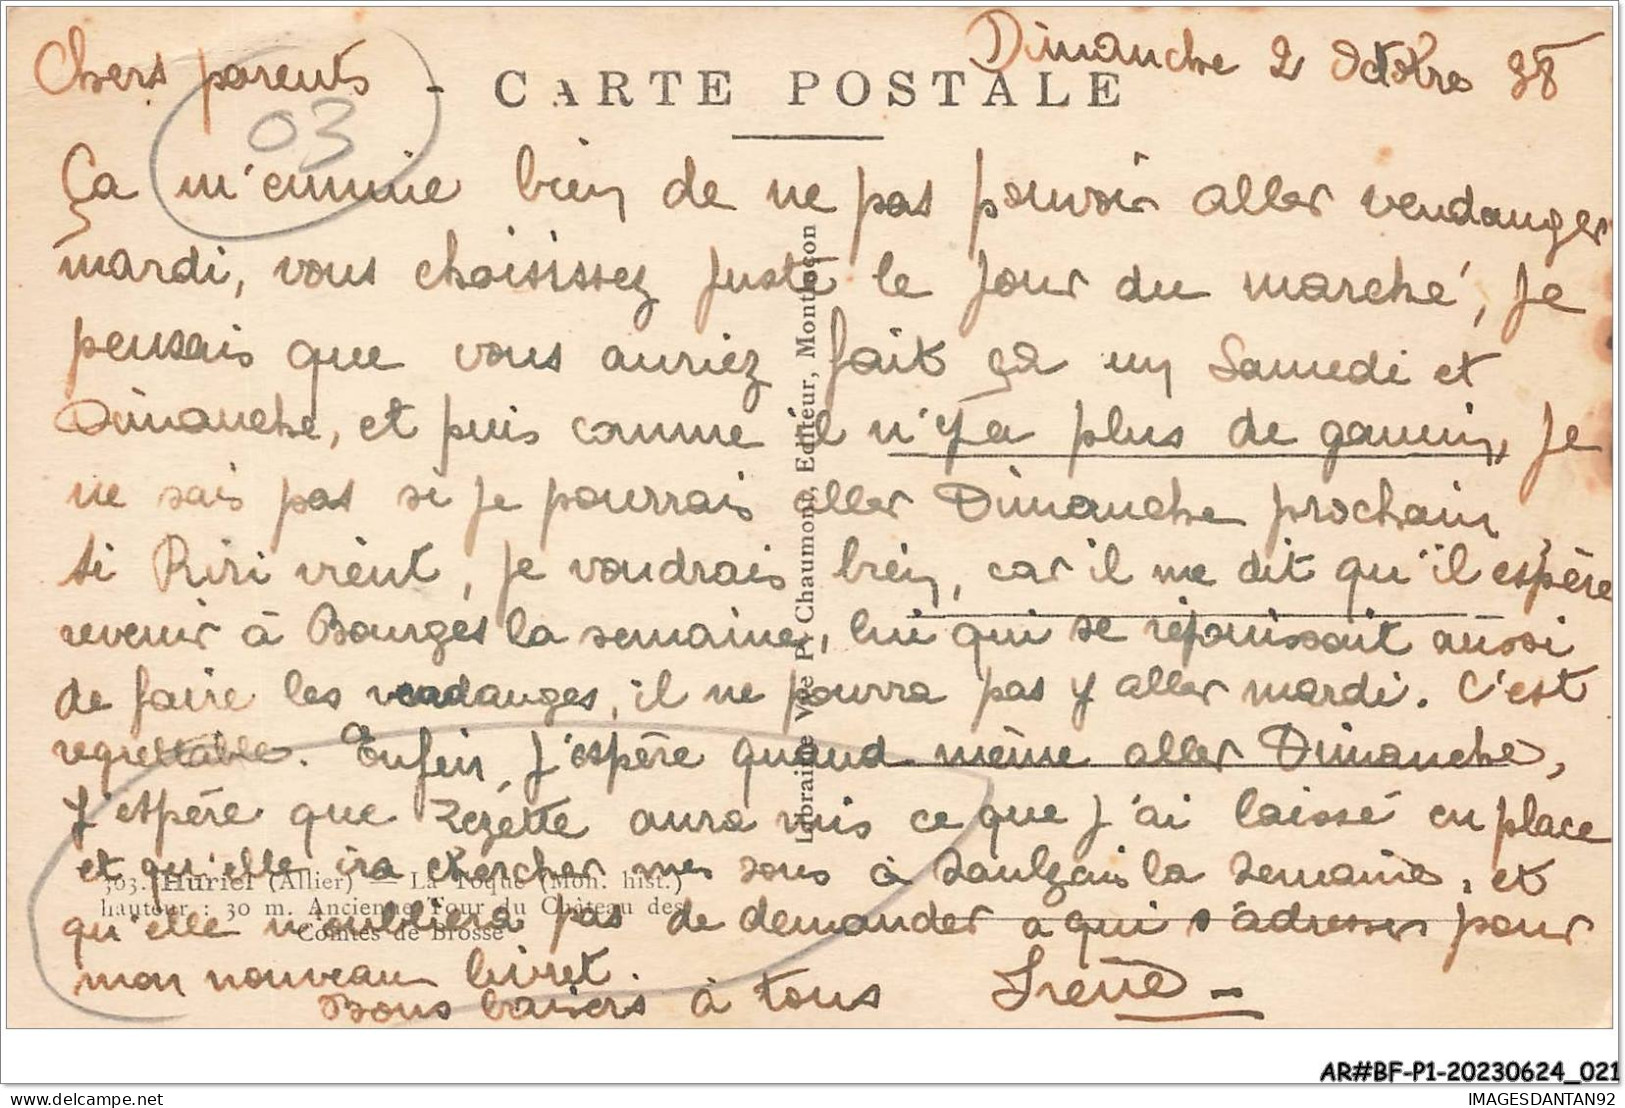 Dimanche 2 Octobre 38
Chers parents
CARTE POSTALE
03
Ça m'ennuie bien de ne pas pouvoir aller vendanger
mardi, vous choisissez juste le jour du marché, je
pensais que vous auriez fait ça un Samedi et
Dimanche, et puis comme il n'y a plus de gamin, je
ne sais pas si je pourrais aller Dimanche prochain,
si Riri vient, je voudrais bien, car il me dit qu'il espère
revenir à Bourges la semaine, lui qui se réjouissait aussi
de faire les vendanges, il ne pourra pas y aller mardi. C'est
regrettable. Enfin, j'espère quand même aller Dimanche,
j'espère que Zézette aura mis ce que j'ai laissé en place
et qu'elle ira chercher mes sous à Saulzais la semaine, et
qu'elle n'oubliera pas de demander à qui s'adresser pour
mon nouveau livret.
Bons baisers à tous Irène
Librairie Vve P. Chaumont, Editeur, Montluçon
303. Huriel (Allier) — La Toque (Mon. hist.)
hauteur : 30 m. Ancienne Tour du Château des
Comtes de Brosse
AR#BF-P1-20230624_021
delcampe.net
IMAGESDANTAN92